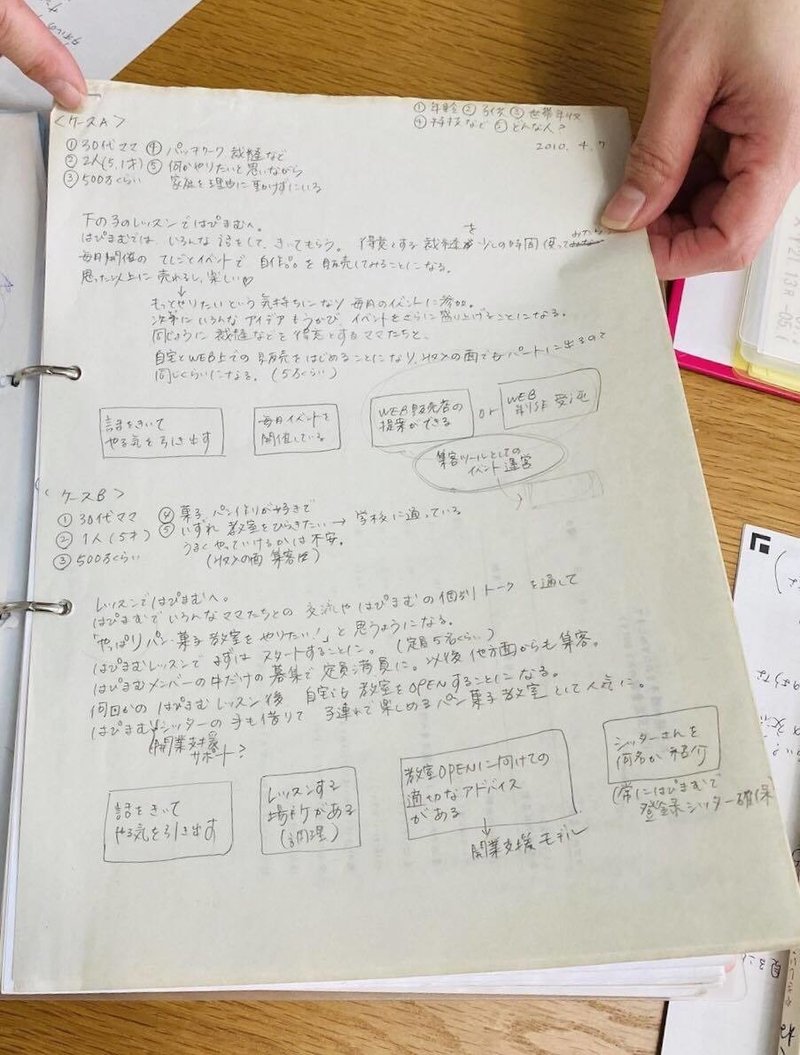 <ケースA>
①年齢 ②子供 ③世帯年収
④特技など ⑤どんな人?
2010. 4. 7
①30代ママ ④パッチワーク 裁縫など
②2人(5,1才) ⑤何かやりたいと思いながら
③500万くらい 家庭を理由に動けずにいる
下の子のレッスンではぴまむへ。
はぴまむでは、いろんな話をして、きいてもらう。得意とする裁縫を少しの時間使って
毎月開催の てしごとイベントで 自作品を販売してみることになる。
思った以上に売れるし、楽しい♡
↓
もっとやりたいという気持ちになり 毎月のイベントに参加。
次第にいろんなアイデアもうかび イベントをさらに盛り上げることになる。
同じように 裁縫などを得意とするママたちと、
自宅とWEB上での販売をはじめることになり、収入の面でもパートに出るのと
同じくらいになる。(5万くらい)
話をきいて
やる気を引き出す
毎月イベントを
開催している
WEB販売店の
提案ができる
or
WEB
受注
集客ツールとしての
イベント運営
<ケースB>
①30代ママ ④菓子、パン作りが好きで
②1人(5才) ⑤いずれ教室をひらきたい → 学校に通っている
③500万くらい うまくやっていけるかは不安。
(収入の面 集客性)
レッスンではぴまむへ。
はぴまむでいろんなママたちとの交流やはぴまむの個別トークを通して
「やっぱりパン・菓子教室をやりたい!」と思うようになる。
はぴまむレッスンでまずはスタートすることに。(定員5名くらい)
はぴまむメンバーの中だけの募集で定員満員に。以後他方面からも集客。
何回かのはぴまむレッスン後 自宅でも教室をOPENすることになる。
はぴまむシッターの手も借りて 子連れで楽しめるパン菓子教室として人気に。
開業支援
サポート?
話をきいて
やる気を引き出す
レッスンする
場所がある
(調理)
教室OPENに向けての
適切なアドバイス
がある
↓
開業支援モデル
シッターさんを
何名か紹介
(常にはぴまむで
登録シッター確保